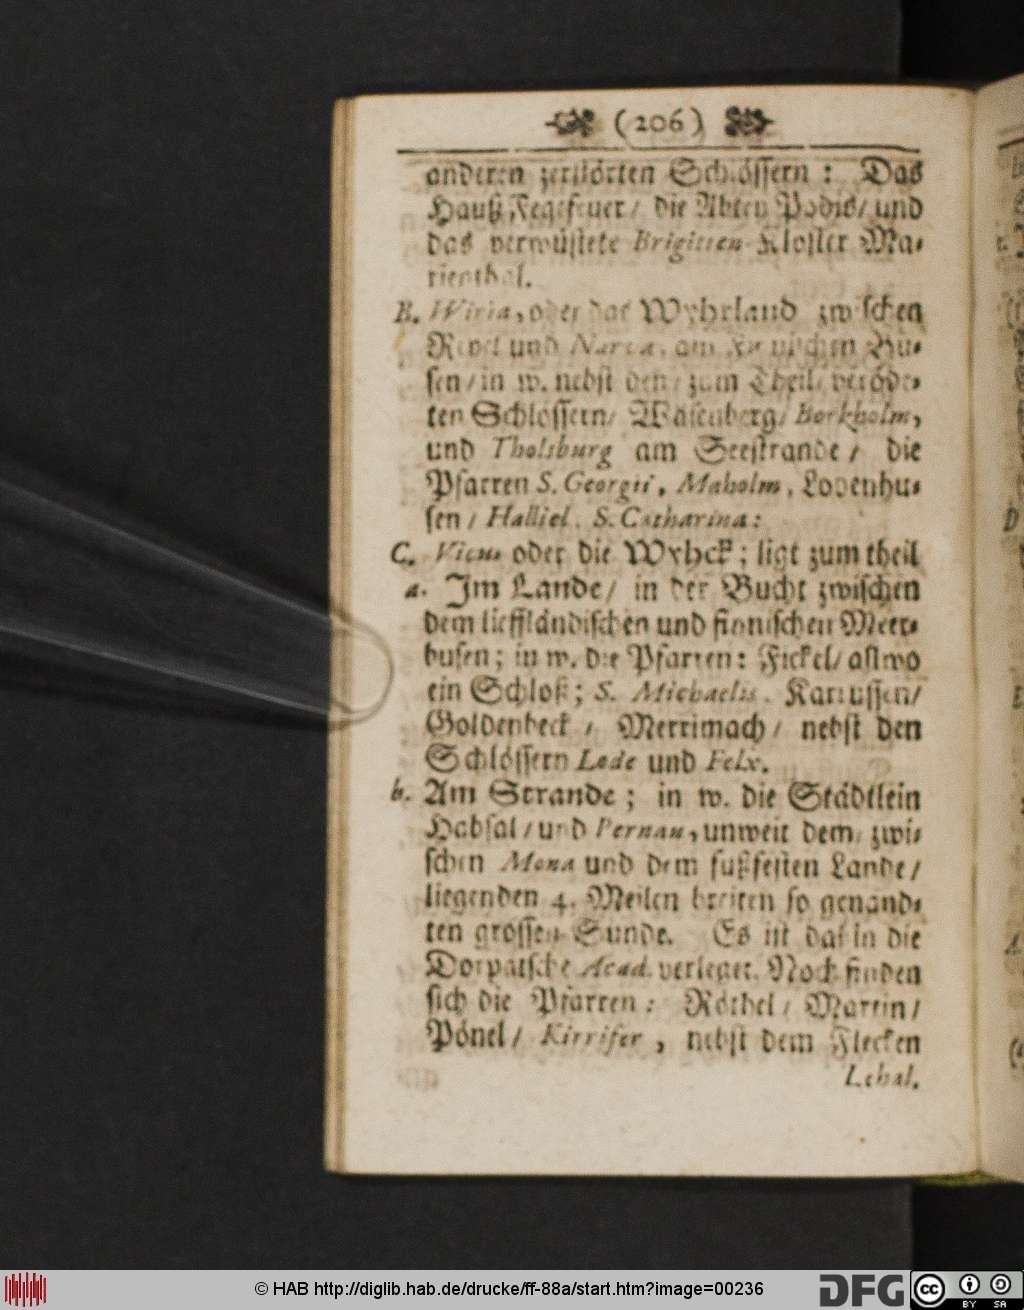 (206)
anderen zerstörten Schlössern: Das
Hauß Fegefeuer/ die Abtey Padis/ und
das verwüstete Brigitten Kloster Ma-
rienthal.
B. Wiria, oder das Wyhrland zwischen
Revel und Narva, am Bu-
sen/ in w. nebst den/ zum Theil/ veröde-
ten Schlössern/ Wäsenberg/ Borkholm,
und Tholsburg am Seestrande/ die
Pfarren S. Georgii, Maholm, Lodenhu-
sen/ Halliel, S. Catharina:
C. Vicus oder die Wyhck; ligt zum theil
a. Im Lande/ in der Bucht zwischen
dem lieffländischen und finnischen Meer-
busen; in w. die Pfarren: Fickel/ allwo
ein Schloß; S. Michaelis, Karrussen/
Goldenbeck/ Merrimach/ nebst den
Schlössern Lode und Felx.
b. Am Strande; in w. die Städtlein
Habsal/ und Pernau, unweit dem/ zwi-
schen Mona und dem fußfesten Lande/
liegenden 4. Meilen breiten so genand-
ten grossen Sunde. Es ist dahin die
Dorpatsche Acad. verleget. Noch finden
sich die Pfarren: Röthel/ Martin/
Pönel/ Kirrifer, nebst dem Flecken
Lehal.
© HAB http://diglib.hab.de/drucke/ff-88a/start.htm?image=00236
DFG
cc BY SA